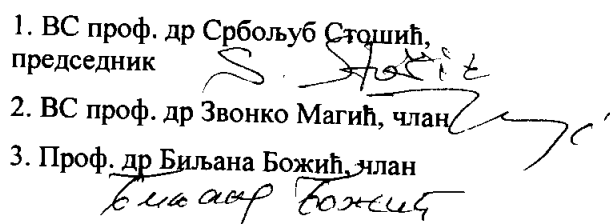 1. ВС проф. др Србољуб Стошић,
председник
S. Stošić
2. ВС проф. др Звонко Магић, члан
3. Проф. др Биљана Божић, члан
Биљана Божић